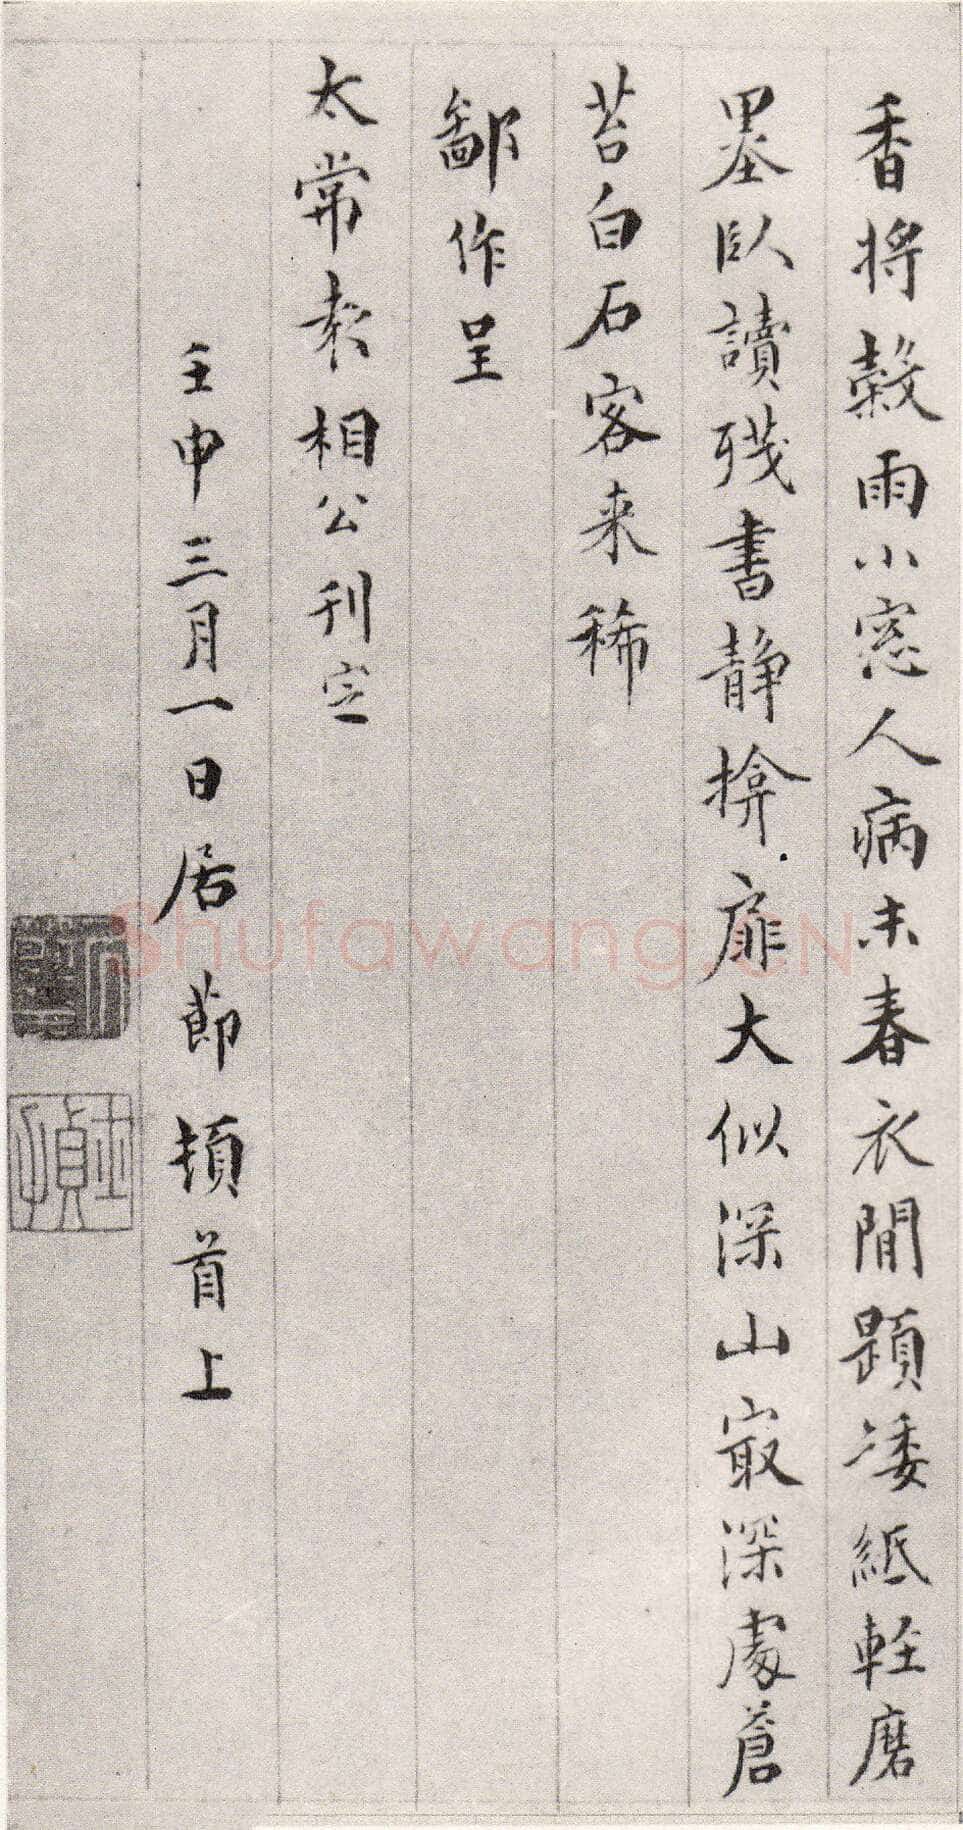 香將榖雨小窓人病未春衣閒題矮紙輕磨
墨臥讀殘書静揜扉大似深山㝡深處蒼
苔白石客来稀
鄙作呈
太常袁相公刊定
壬申三月一日居莭頓首上
Shufawang.CN